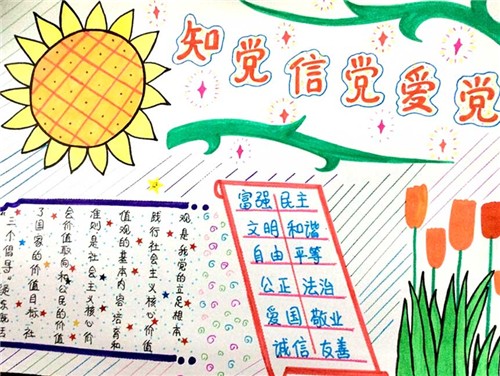 知党信党爱党
三个倡导。
了国家的价值目标社
会价值取向和公民的价值
准则是社会主义核心价
值观的基本内容培育和
践行社会主义核心价值
观是我党的立足根本
富强 民主
文明 和谐
自由 平等
公正 法治
爱国 敬业
诚信 友善